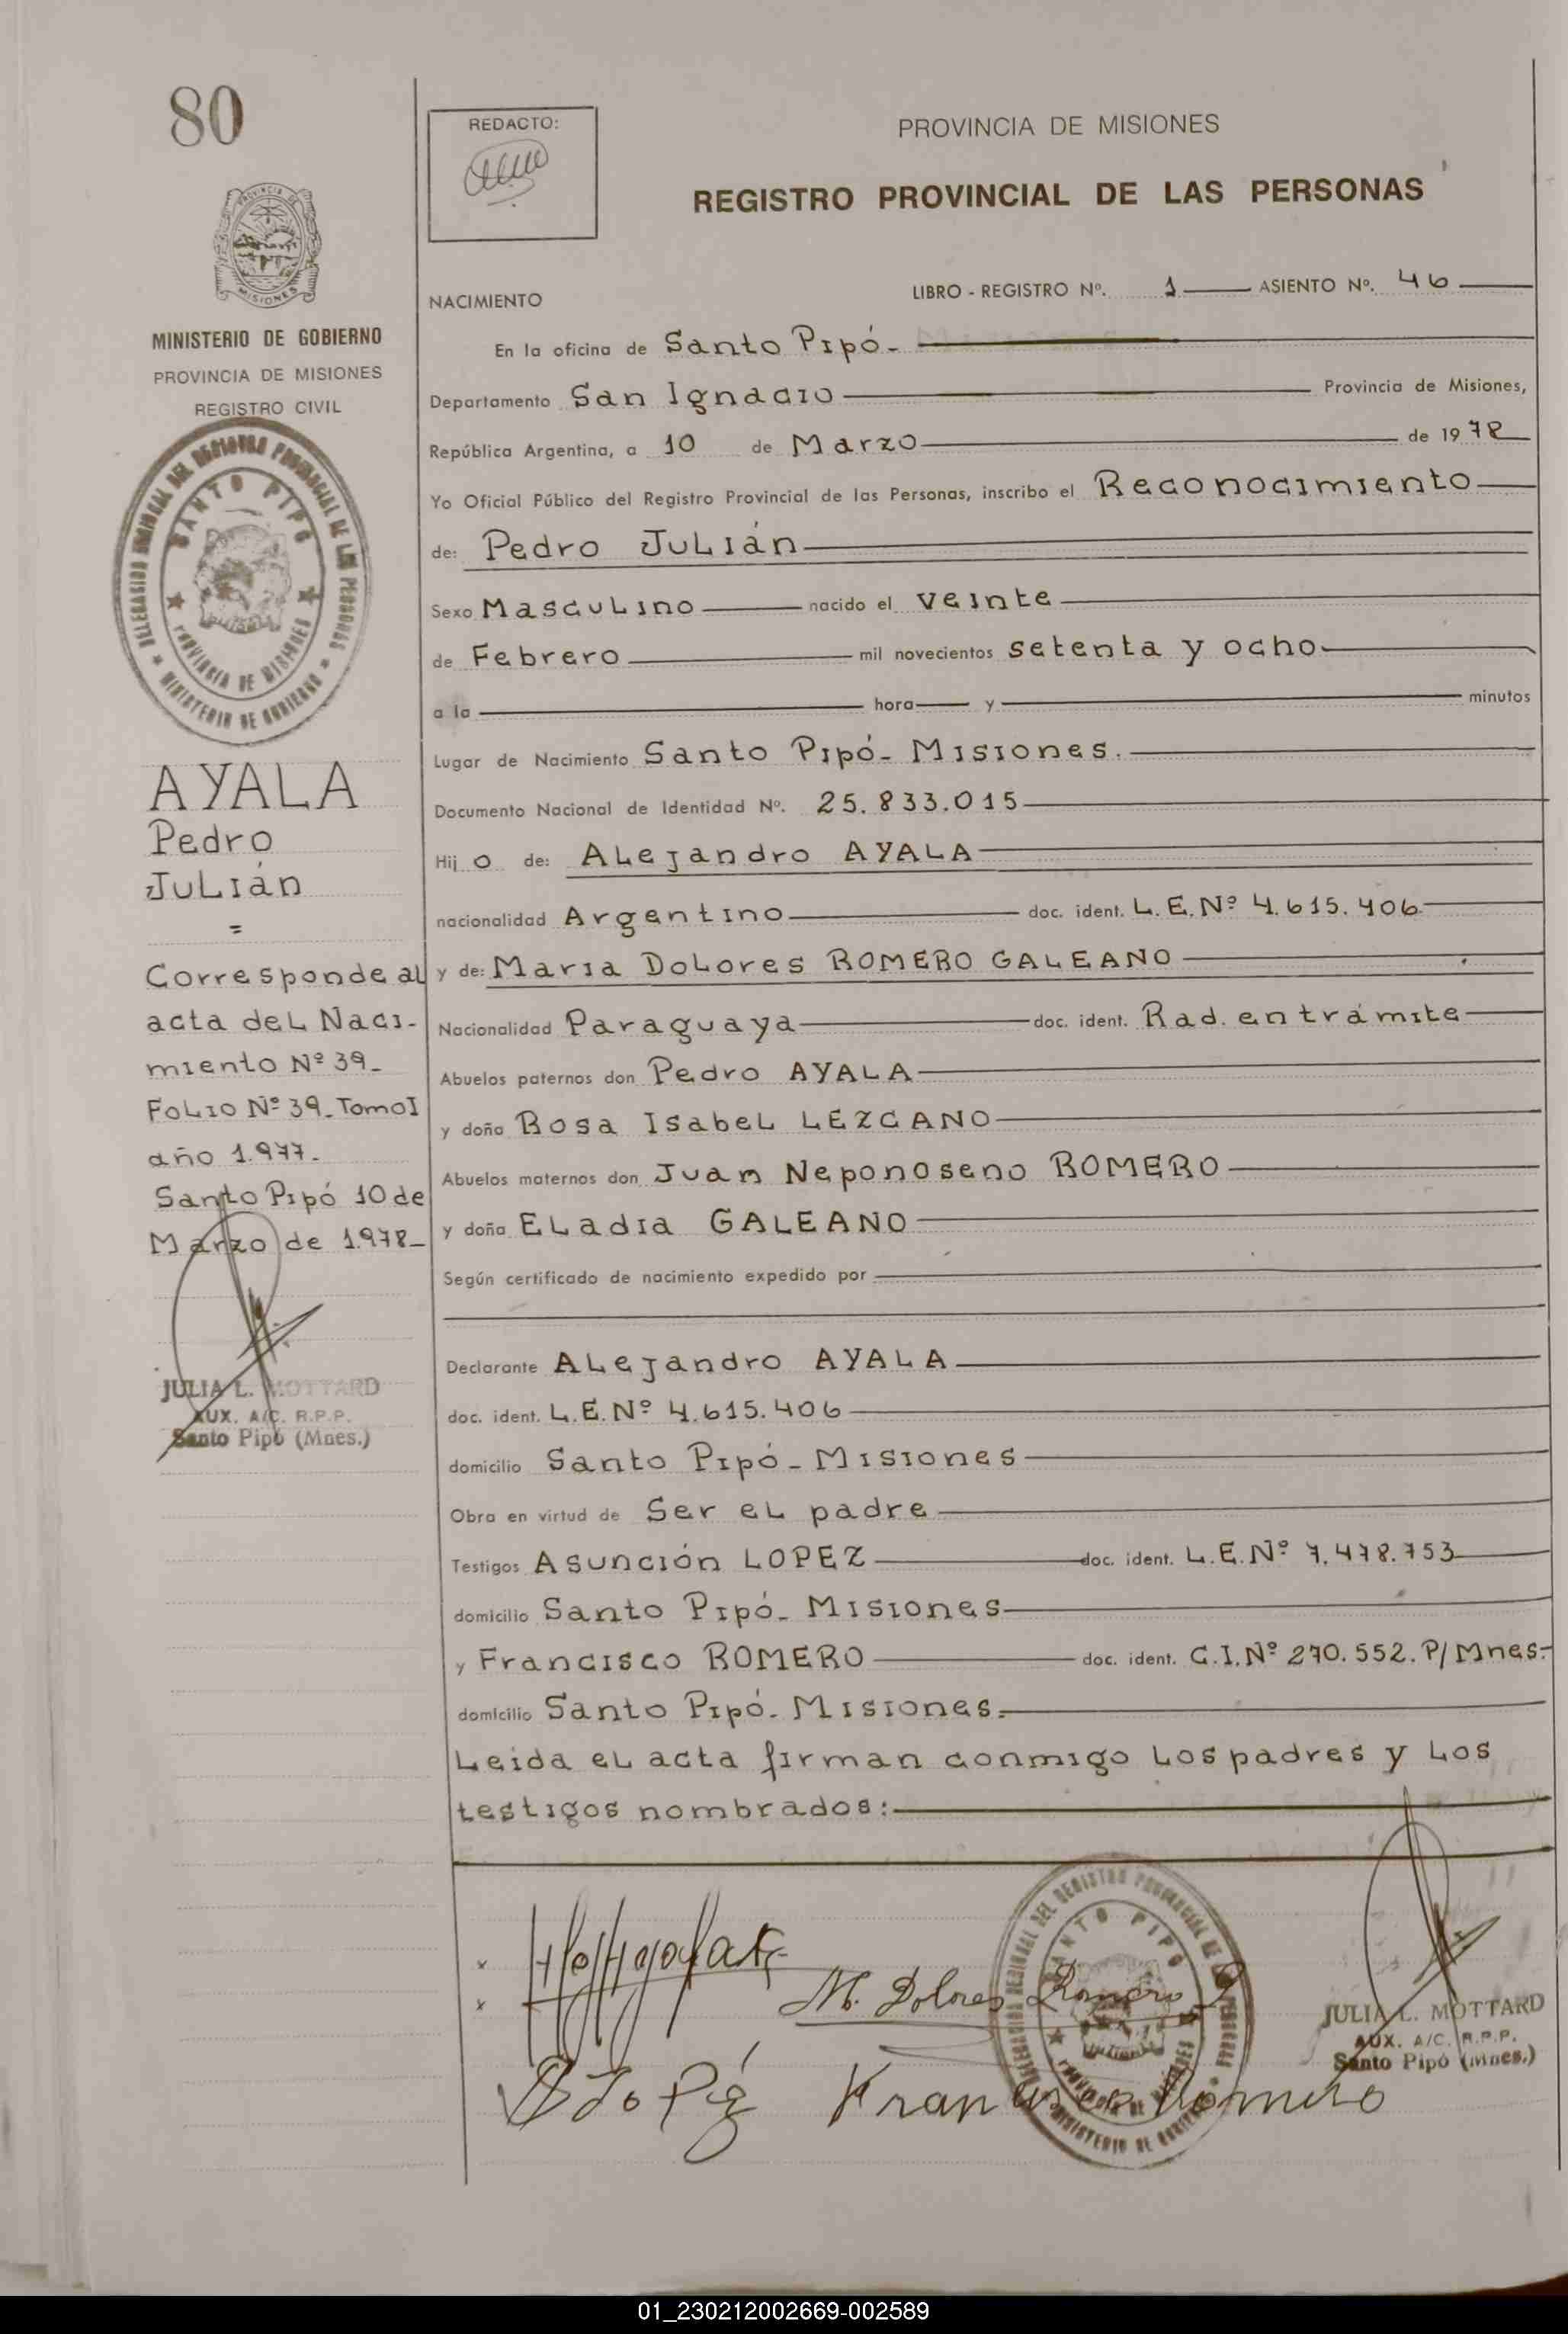 80
REDACTO:
PROVINCIA DE MISIONES
REGISTRO PROVINCIAL DE LAS PERSONAS
PROVINCIA DE
MISIONES
MINISTERIO DE GOBIERNO
PROVINCIA DE MISIONES
REGISTRO CIVIL
DELEGACION REGIONAL DEL REGISTRO PROVINCIAL DE LAS PERSONAS
SANTO PIPO
PROVINCIA DE MISIONES
MINISTERIO DE GOBIERNO
AYALA
Pedro
Julián
=
Corresponde al
acta del Naci-
miento Nº 39_
Folio Nº 39_ Tomo I
año 1.977_
Santo Pipó 10 de
Marzo de 1.978_
JULIA L. MOTTARD
AUX. A/C. R.P.P.
Santo Pipó (Mnes.)
NACIMIENTO
LIBRO - REGISTRO Nº. 1 ASIENTO Nº. 46
En la oficina de Santo Pipó-
Departamento San Ignacio Provincia de Misiones,
República Argentina, a 10 de Marzo de 1978
Yo Oficial Público del Registro Provincial de las Personas, inscribo el Reconocimiento
de: Pedro Julián
Sexo Masculino nacido el veinte
de Febrero mil novecientos setenta y ocho
a la hora y minutos
Lugar de Nacimiento Santo Pipó- Misiones.
Documento Nacional de Identidad Nº. 25.833.015
Hijo de: Alejandro AYALA
nacionalidad Argentino doc. ident. L.E.Nº 4.615.406
y de: Maria Dolores ROMERO GALEANO
Nacionalidad Paraguaya doc. ident. Rad. en trámite
Abuelos paternos don Pedro AYALA
y doña Rosa Isabel LEZCANO
Abuelos maternos don Juan Neponoseno ROMERO
y doña Eladia GALEANO
Según certificado de nacimiento expedido por
Declarante Alejandro AYALA
doc. ident. L.E.Nº 4.615.406
domicilio Santo Pipó- Misiones
Obra en virtud de Ser el padre
Testigos Asunción LOPEZ doc. ident. L.E.Nº 7.478.753
domicilio Santo Pipó- Misiones
y Francisco ROMERO doc. ident. C.I.Nº 270.552. P/Mnes.
domicilio Santo Pipó- Misiones.
Leida el acta firman conmigo los padres y los
testigos nombrados:
M. Dolores Romero G
Francisco Romero
DELEGACION REGIONAL DEL REGISTRO PROVINCIAL DE LAS PERSONAS
SANTO PIPO
PROVINCIA DE MISIONES
MINISTERIO DE GOBIERNO
JULIA L. MOTTARD
AUX. A/C. R.P.P.
Santo Pipó (Mnes.)
01_230212002669-002589